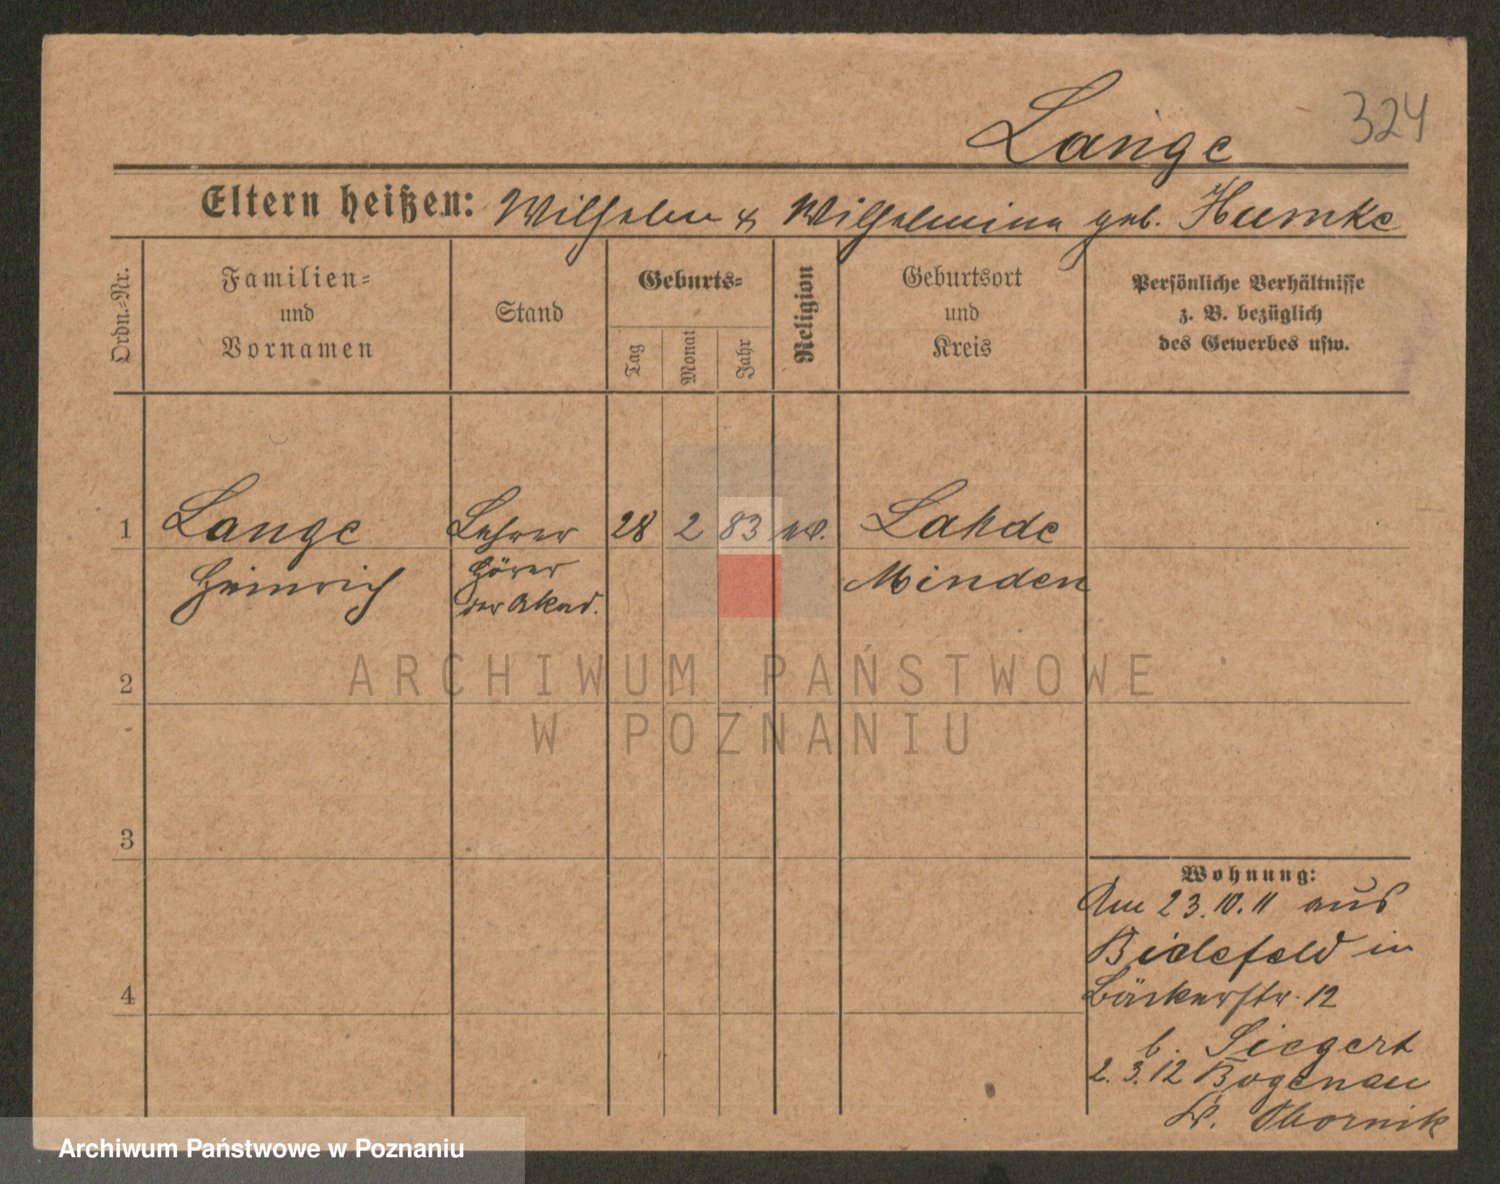 Lange 324
Eltern heißen: Wilhelm & Wilhelmina geb. Humke
Ordn.-Nr.
Familien-
und
Vornamen
Stand
Geburts-
Tag
Monat
Jahr
Religion
Geburtsort
und
Kreis
Persönliche Verhältnisse
z. B. bezüglich
des Gewerbes usw.
1 Lange Lehrer 28 2 83 ev. Lahde
Heinrich Hörer Minden
der Akad.
2
3
4
Wohnung:
Am 23.10.11 aus
Bielefeld in
Bäckerstr. 12
b. Siegert
2.3.12 Bogenau
Kr. Obornik
ARCHIWUM PAŃSTWOWE
W POZNANIU
Archiwum Państwowe w Poznaniu